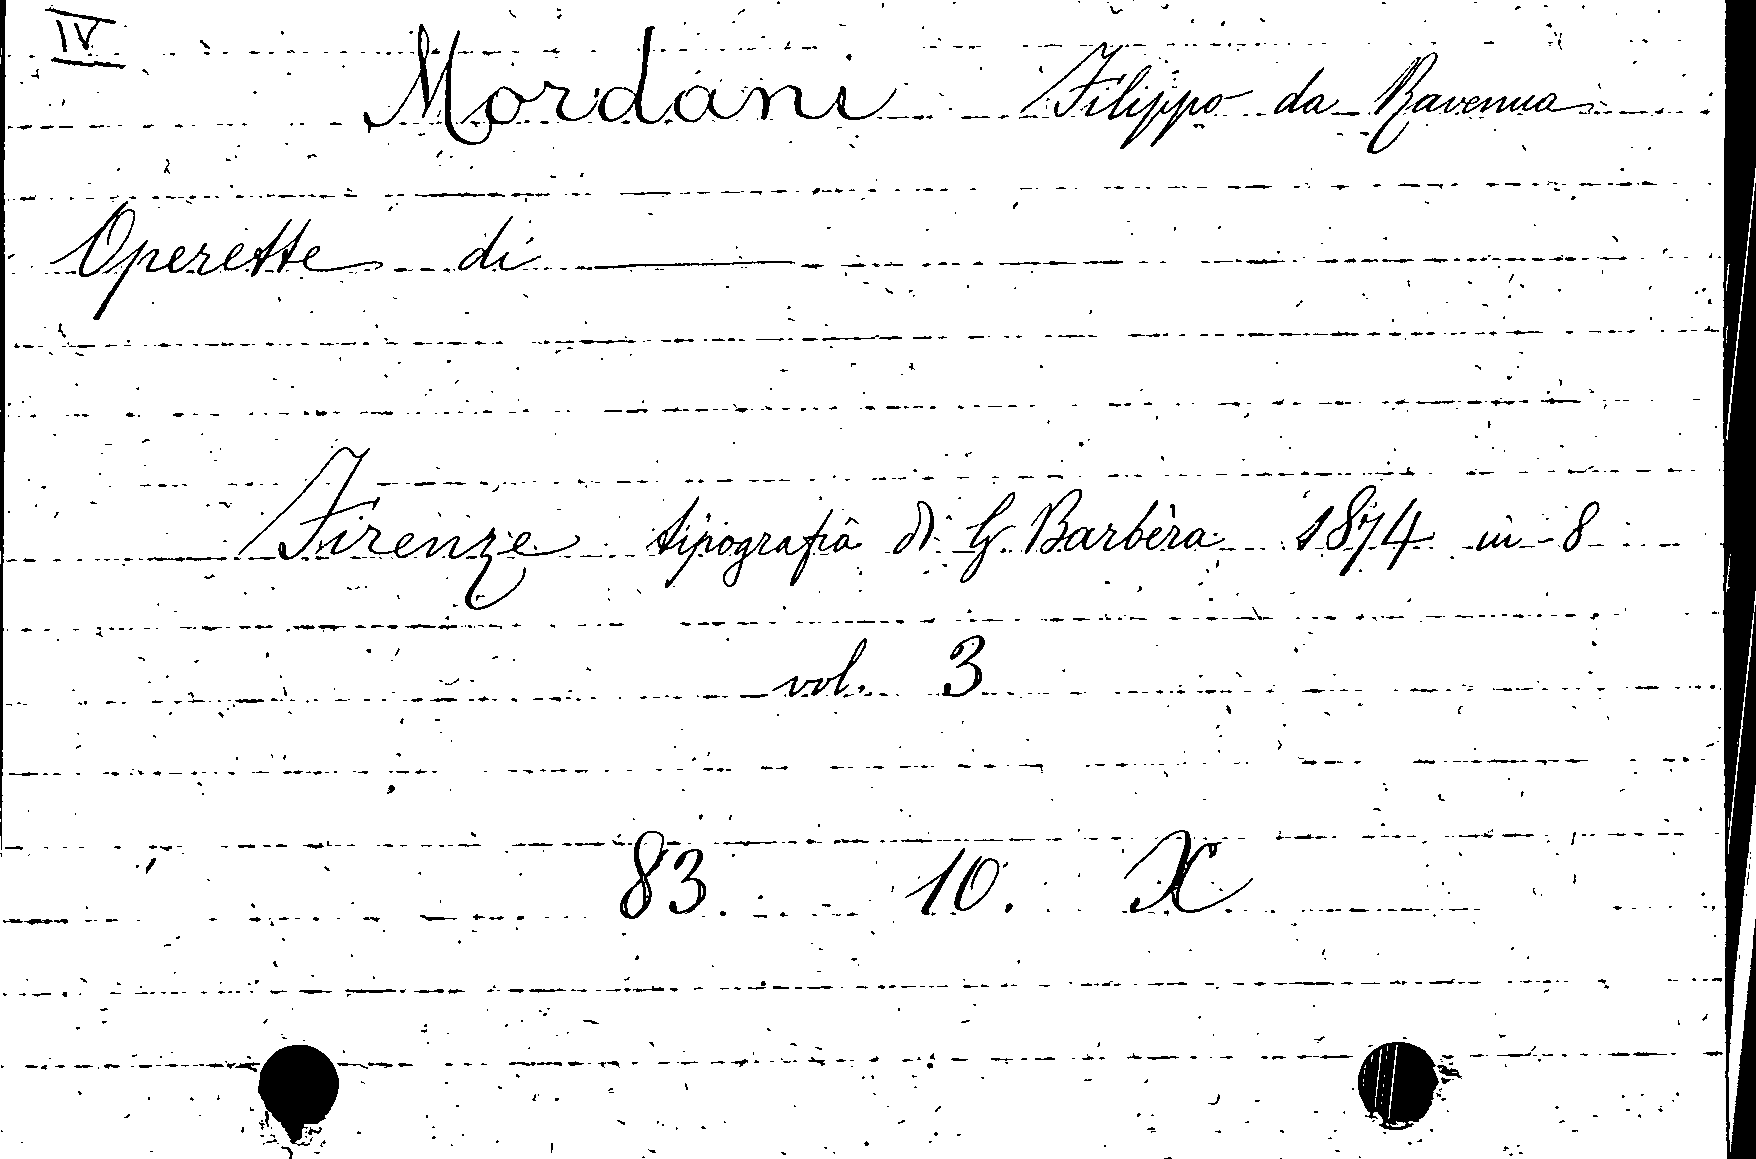 IV
Mordani Filippo da Ravenna
Operette di ———
Firenze tipografia di G. Barbèra 1874 in 8
vol. 3
83. 10. X